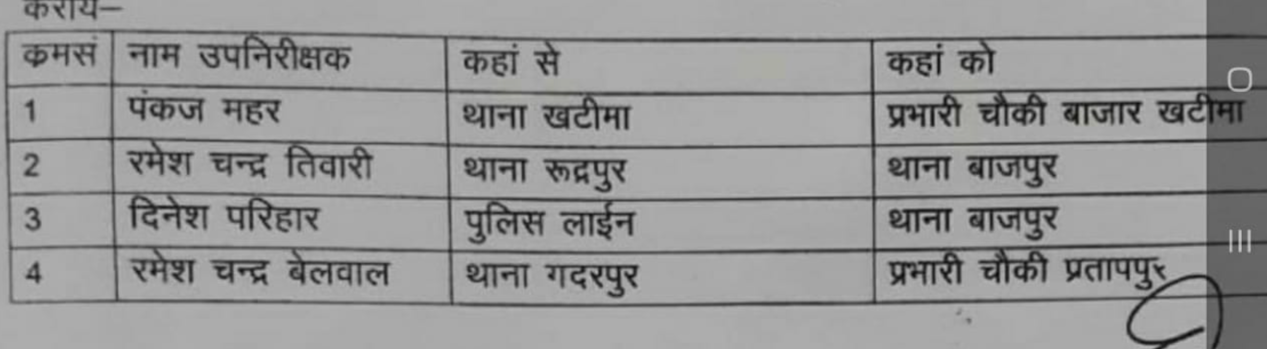 कराये–
कमसं नाम उपनिरीक्षक कहां से कहां को
1 पंकज महर थाना खटीमा प्रभारी चौकी बाजार खटीमा
2 रमेश चन्द्र तिवारी थाना रूद्रपुर थाना बाजपुर
3 दिनेश परिहार पुलिस लाईन थाना बाजपुर
4 रमेश चन्द्र बेलवाल थाना गदरपुर प्रभारी चौकी प्रतापपुर